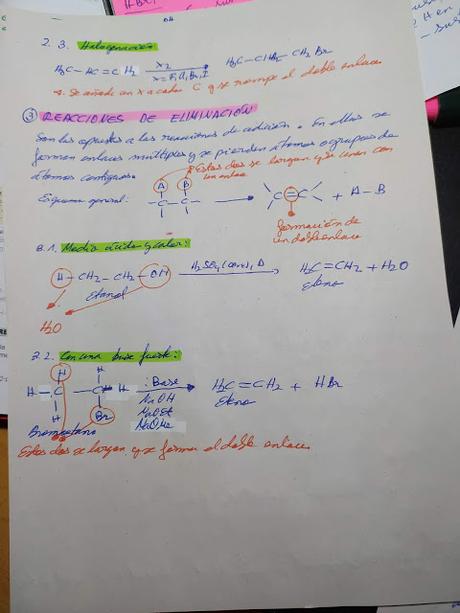 2. 3. Halogenación
H₃C-HC=CH₂ X₂ H₃C-CHBr-CH₂Br
X=F, Cl, Br, I
Se añade un X a cada C y se rompe el doble enlace
③ REACCIONES DE ELIMINACIÓN
Son las opuestas a las reacciones de adición. En ellas se
forman enlaces múltiples y se pierden átomos o grupos de
átomos contiguos.
Estas dos se largan y se unen con
un enlace
A B
Esquema general: -C-C- → C=C + A-B
formación de
un doble enlace
3.1. Medio ácido y calor:
H-CH₂-CH₂-OH H₂SO₄ (conc), Δ H₂C=CH₂ + H₂O
Etanol Eteno
H₂O
3.2. Con una base fuerte:
H H
H-C-C-H : Base → H₂C=CH₂ + HBr
NaOH Eteno
H Br NaOEt
Bromoetano NaOMe
Estas dos se largan y se forma el doble enlace